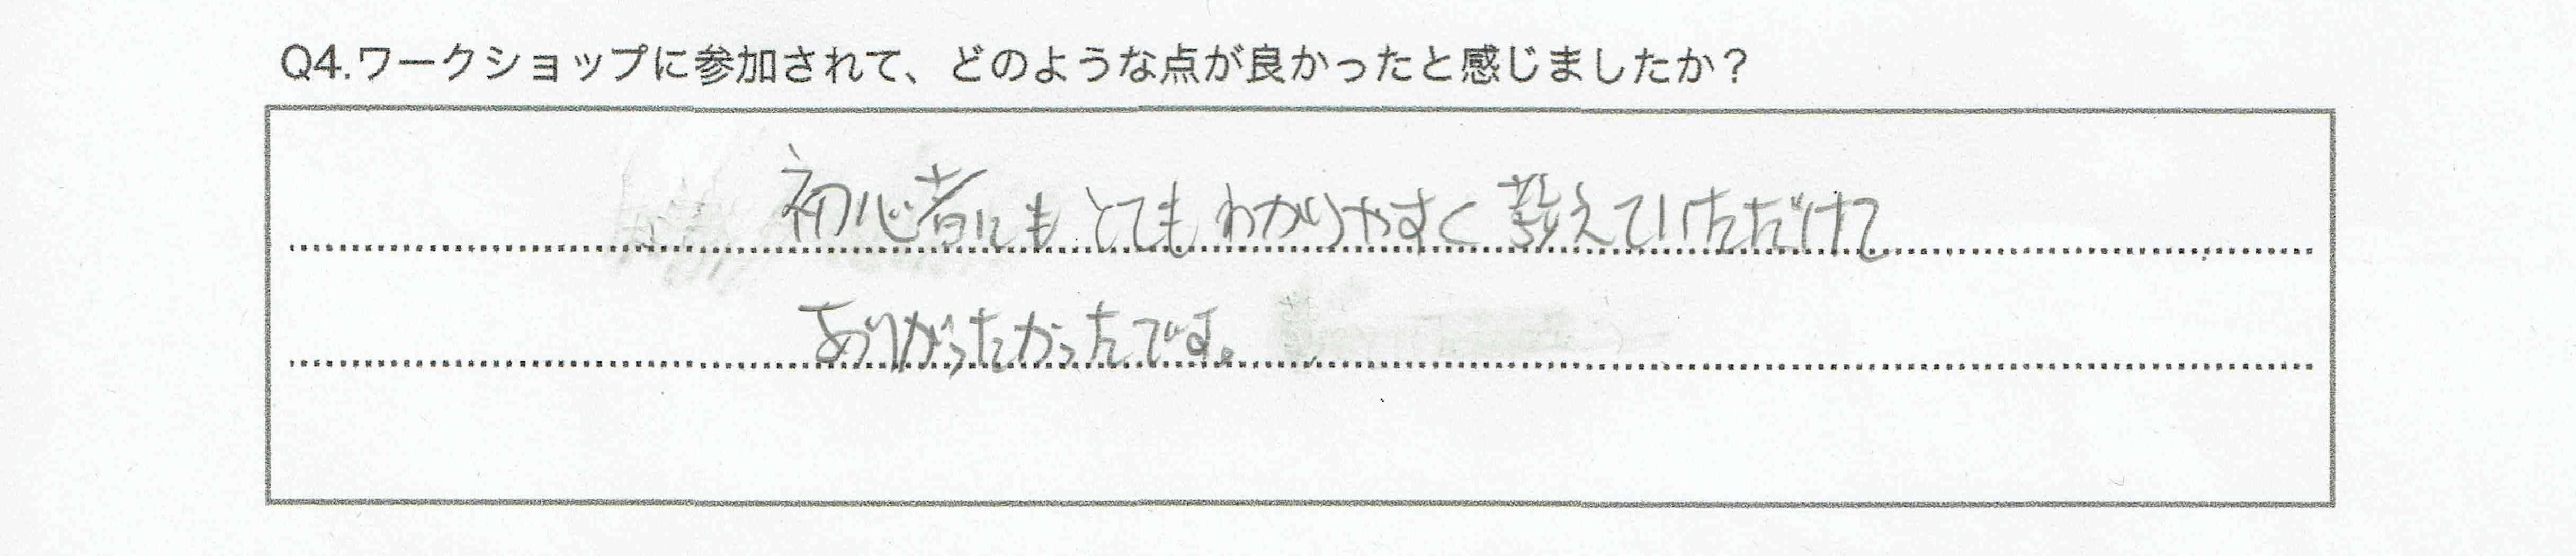 Q4.ワークショップに参加されて、どのような点が良かったと感じましたか？
初心者にもとてもわかりやすく教えていただけて
ありがったかったです。